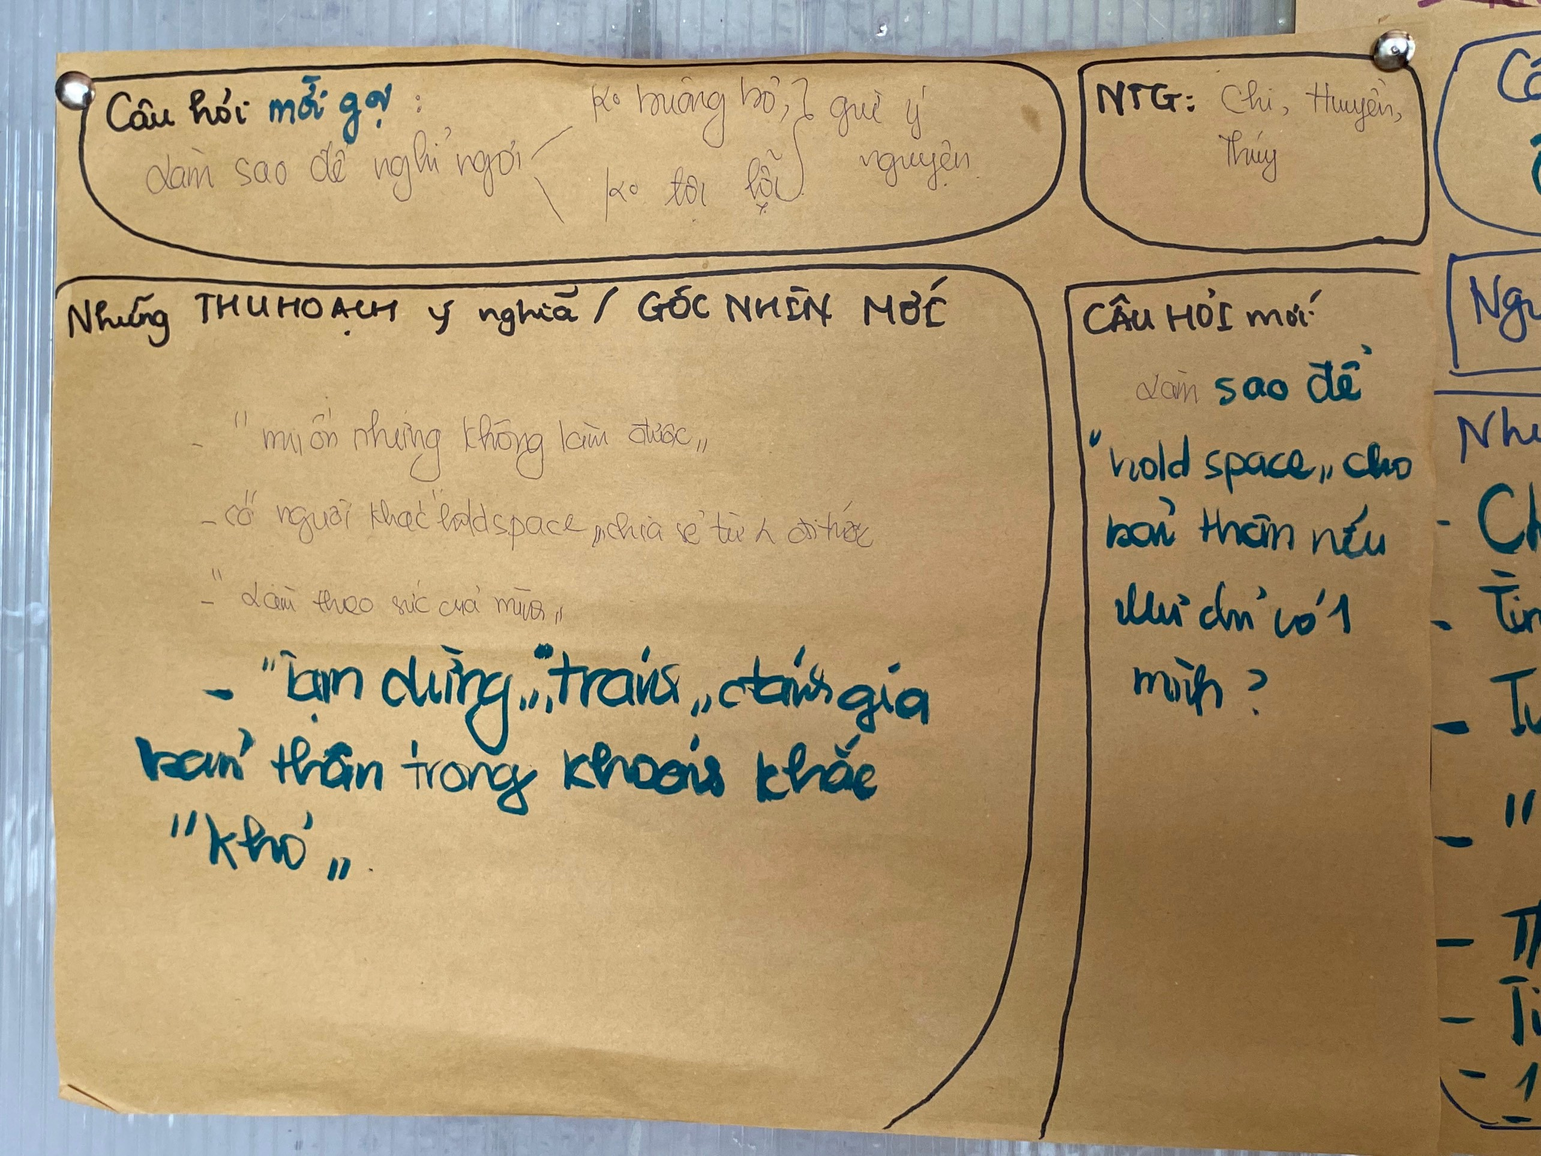 Câu hỏi mới gợi :
Làm sao để nghỉ ngơi
ko buông bỏ,
ko tội lỗi
giữ ý
nguyện
NTG: Chi, Huyền,
Thúy
Những THU HOẠCH ý nghĩa / GÓC NHÌN MỚI
- "muốn nhưng không làm được"
- có người khác "hold space" chia sẻ từ
- "Làm theo sức của mình"
- "Tạm dừng", "tránh" đánh giá
bản thân trong khoảnh khắc
"khó".
CÂU HỎI mới
Làm sao để
"hold space" cho
bản thân nếu
như chỉ có 1
mình?
Ngư
Nhữ